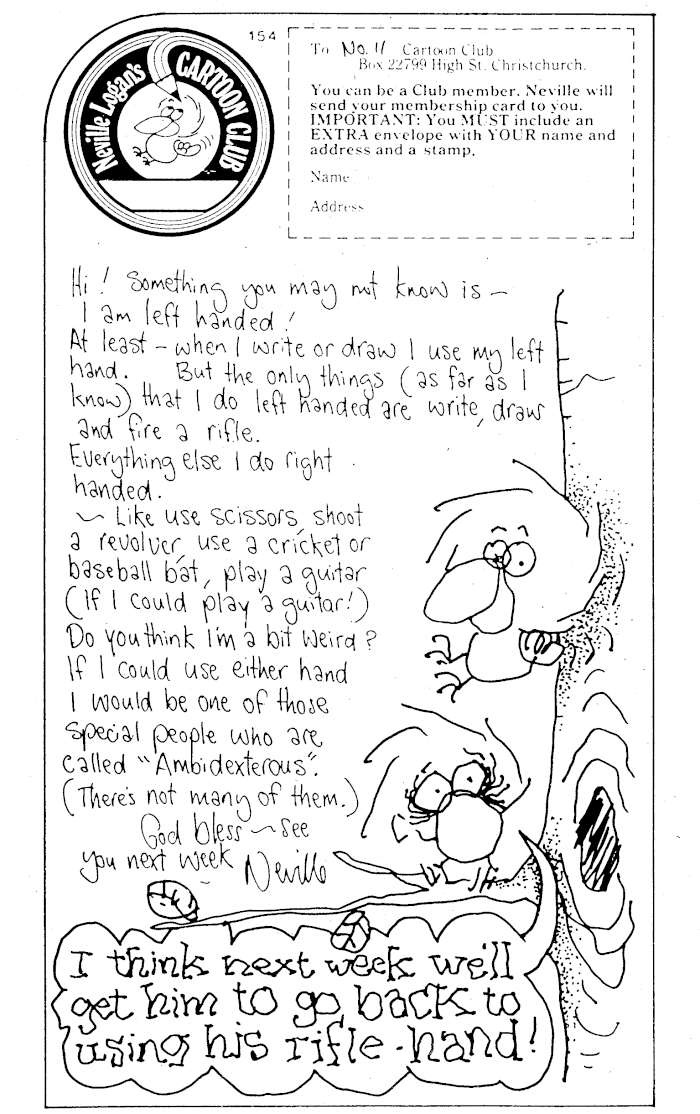 Neville Logan's CARTOON CLUB
154
To No. 11 Cartoon Club
Box 22799 High St. Christchurch.
You can be a Club member. Neville will
send your membership card to you.
IMPORTANT: You MUST include an
EXTRA envelope with YOUR name and
address and a stamp.
Name
Address
Hi! Something you may not know is –
I am left handed!
At least – when I write or draw I use my left
hand. But the only things (as far as I
know) that I do left handed are write, draw
and fire a rifle.
Everything else I do right
handed.
~ Like use scissors, shoot
a revolver, use a cricket or
baseball bat, play a guitar
(If I could play a guitar!)
Do you think I'm a bit weird?
If I could use either hand
I would be one of those
special people who are
called "Ambidexterous".
(There's not many of them.)
God bless ~ see
you next week Neville
I think next week we'll
get him to go back to
using his rifle-hand!